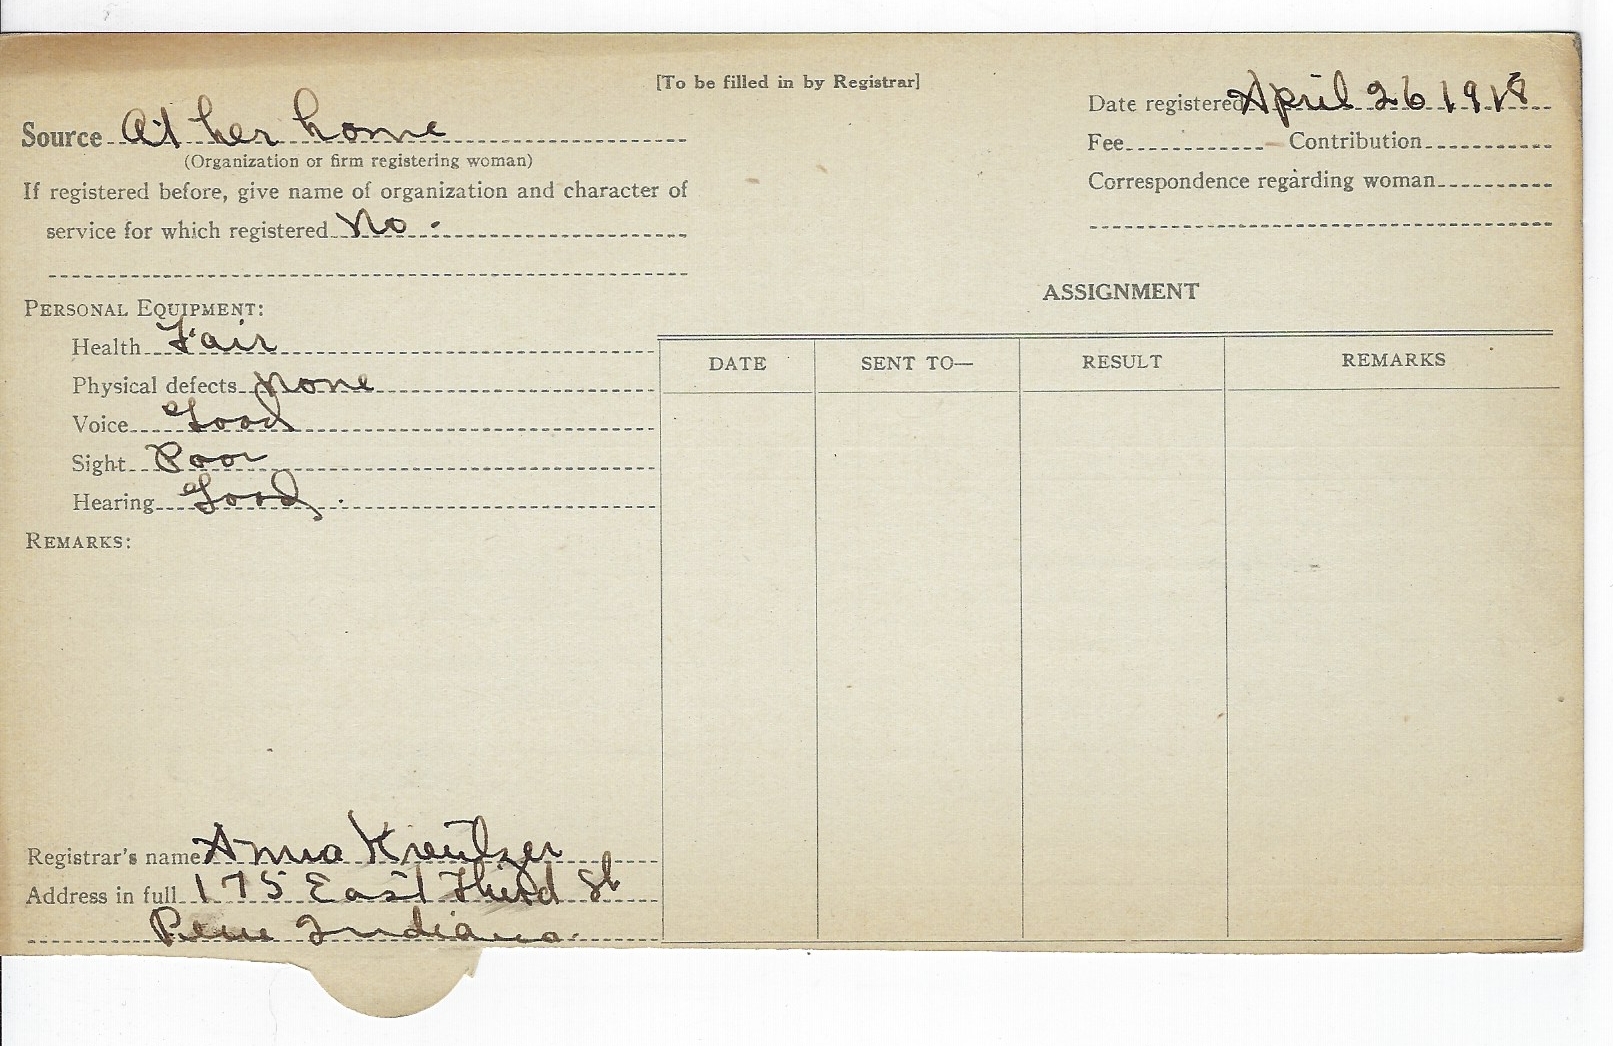 [To be filled in by Registrar]
Source At her home
(Organization or firm registering woman)
If registered before, give name of organization and character of
service for which registered No.
Date registered April 26 1918
Fee Contribution
Correspondence regarding woman
PERSONAL EQUIPMENT:
Health Fair
Physical defects None
Voice Good
Sight Poor
Hearing Good.
REMARKS:
ASSIGNMENT
DATE SENT TO— RESULT REMARKS
Registrar's name Anna Kreutzer
Address in full 175 East Third St
Peru Indiana.